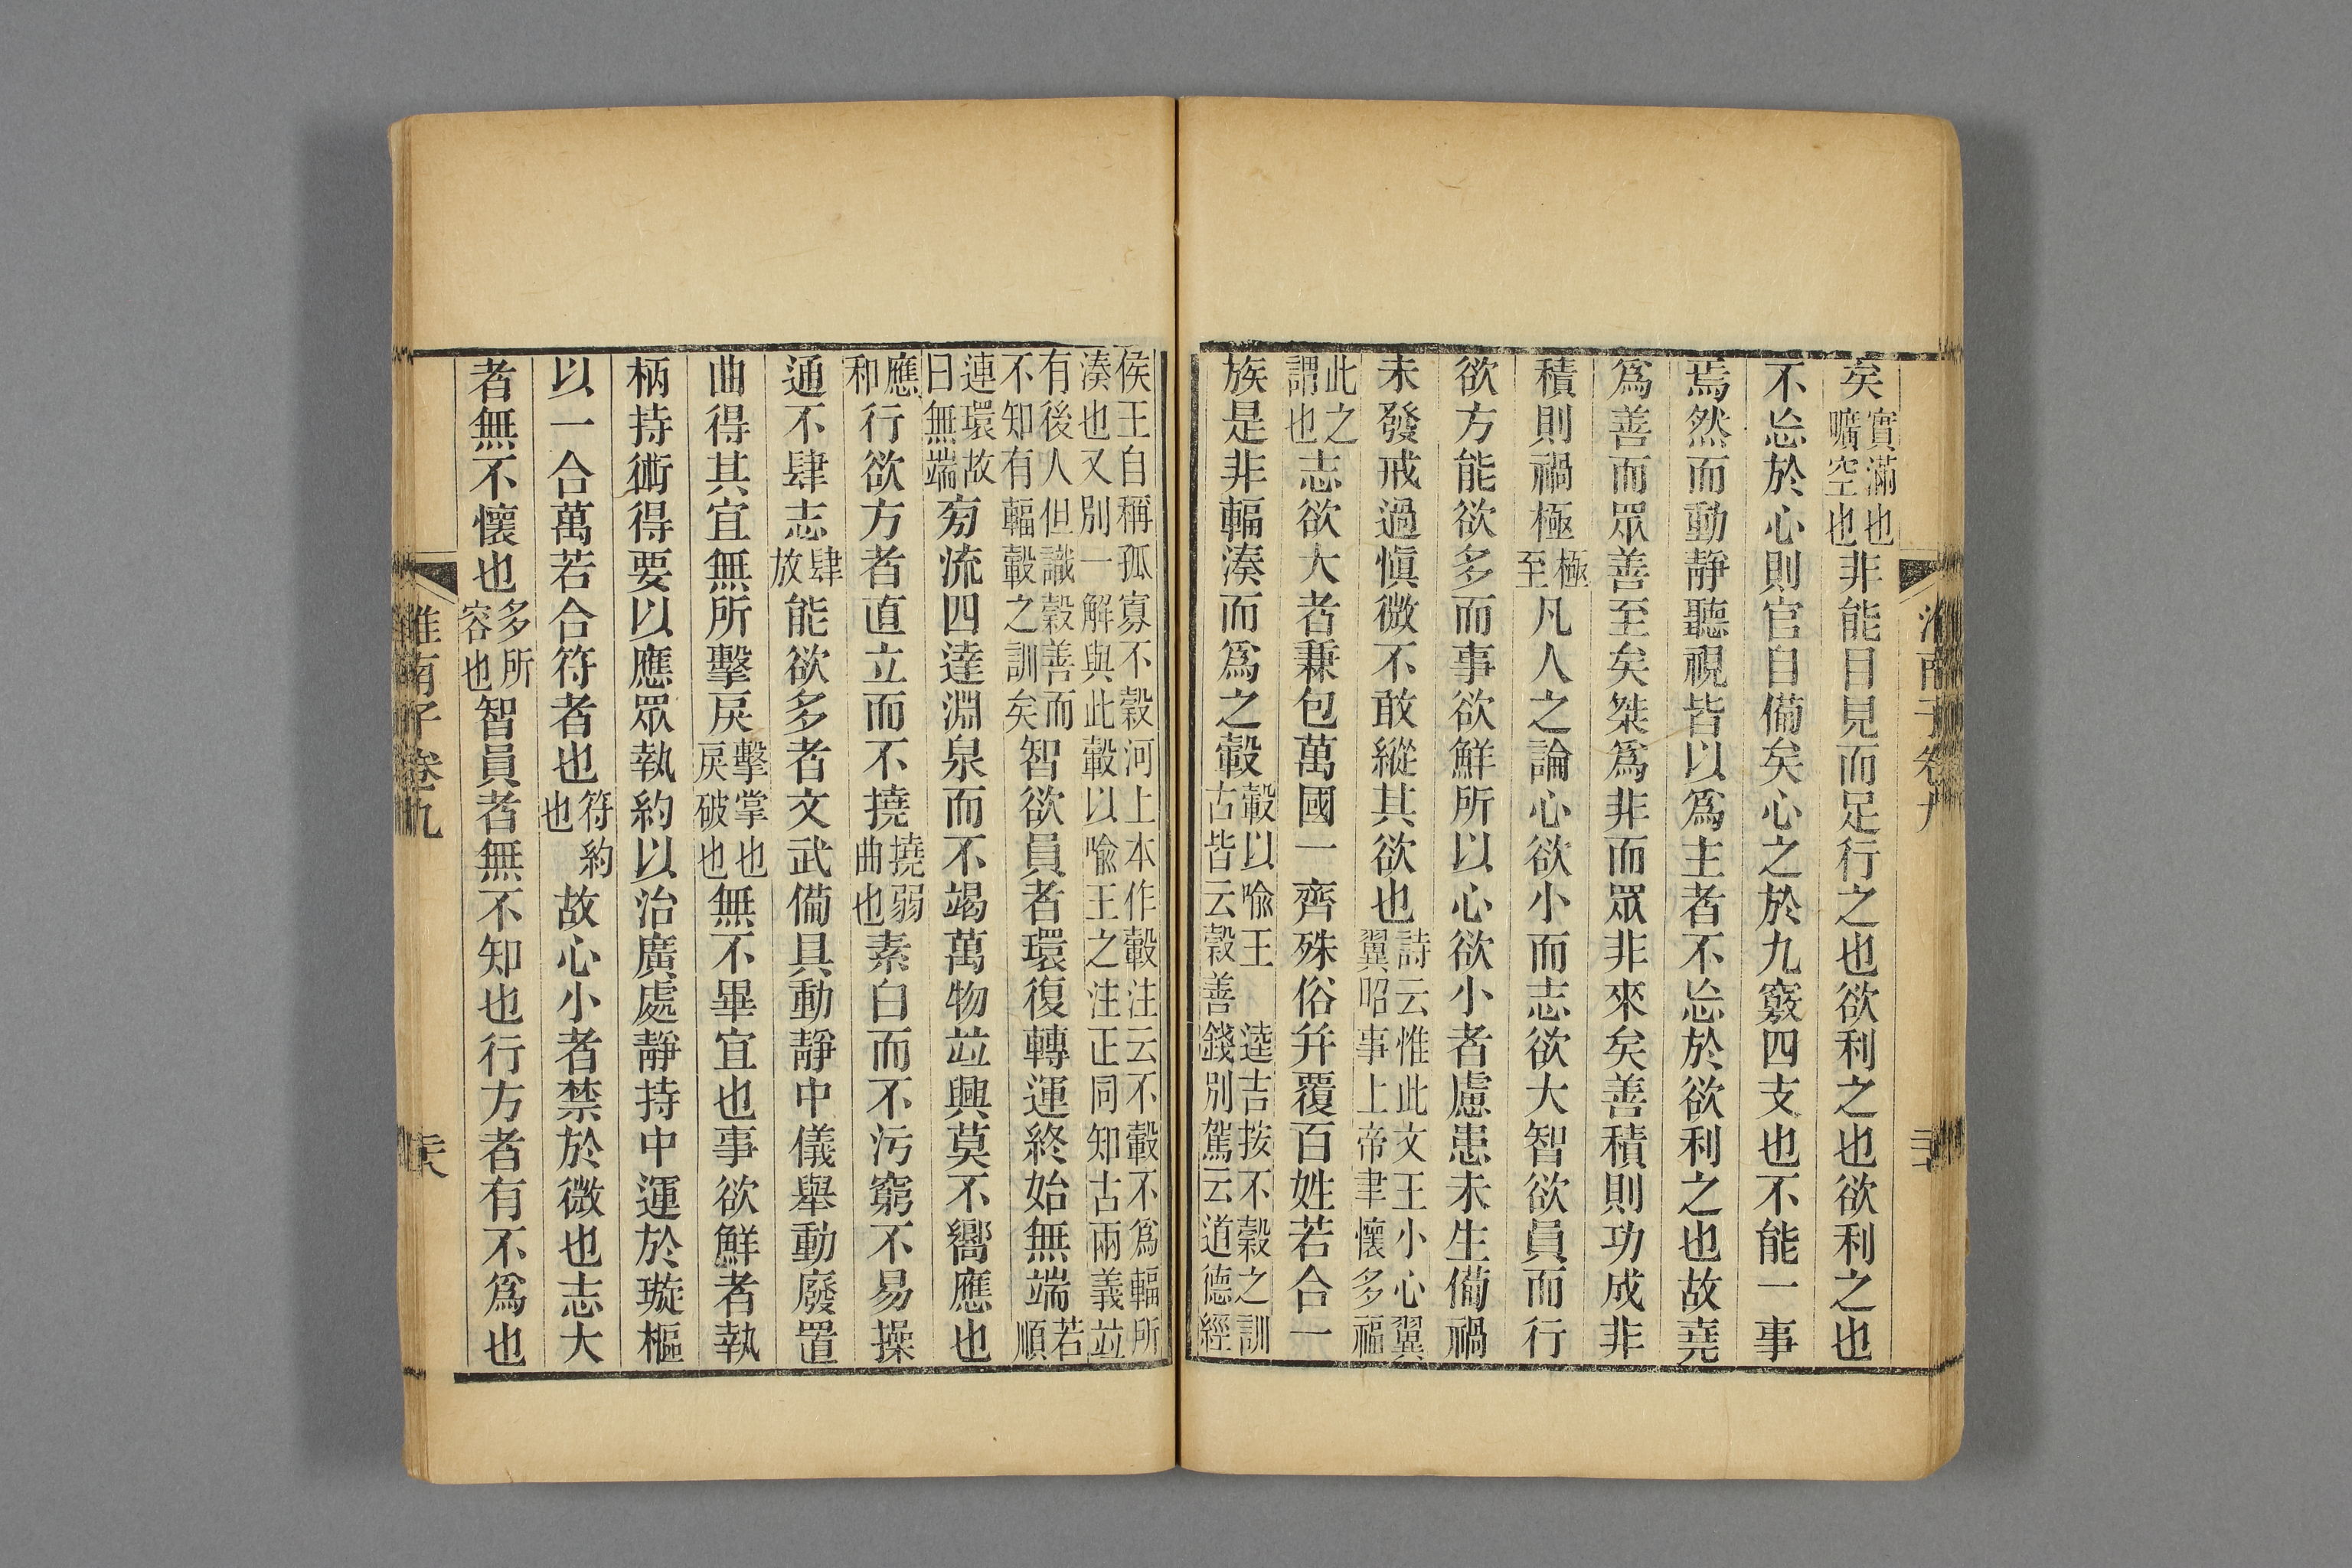 矣實滿也曠空也非能目見而足行之也欲利之也欲利之也
不忘於心則官自備矣心之於九竅四支也不能一事
焉然而動靜聽視皆以爲主者不忘於欲利之也故堯
爲善而眾善至矣桀爲非而眾非來矣善積則功成非
積則禍極極至凡人之論心欲小而志欲大智欲員而行
欲方能欲多而事欲鮮所以心欲小者慮患未生備禍
未發戒過慎微不敢縱其欲也詩云惟此文王小心翼翼昭事上帝聿懷多福
此之謂也志欲大者兼包萬國一齊殊俗幷覆百姓若合一
族是非輻湊而爲之轂轂以喻王古皆云穀善 逵吉按不穀之訓錢別駕云道德經
侯王自稱孤寡不穀河上本作轂注云不轂不爲輻所湊也又別一解與此轂以喻王之注正同知古兩義竝
有後人但識穀善而不知有輻轂之訓矣智欲員者環復轉運終始無端若順
連環故曰無端旁流四達淵泉而不竭萬物竝興莫不嚮應也
應和行欲方者直立而不撓撓弱曲也素白而不污窮不易操
通不肆志肆放能欲多者文武備具動靜中儀舉動廢置
曲得其宜無所擊戾擊掌也戾破也無不畢宜也事欲鮮者執
柄持術得要以應眾執約以治廣處靜持中運於璇樞
以一合萬若合符者也符約也故心小者禁於微也志大
者無不懷也多所容也智員者無不知也行方者有不爲也
淮南子卷九